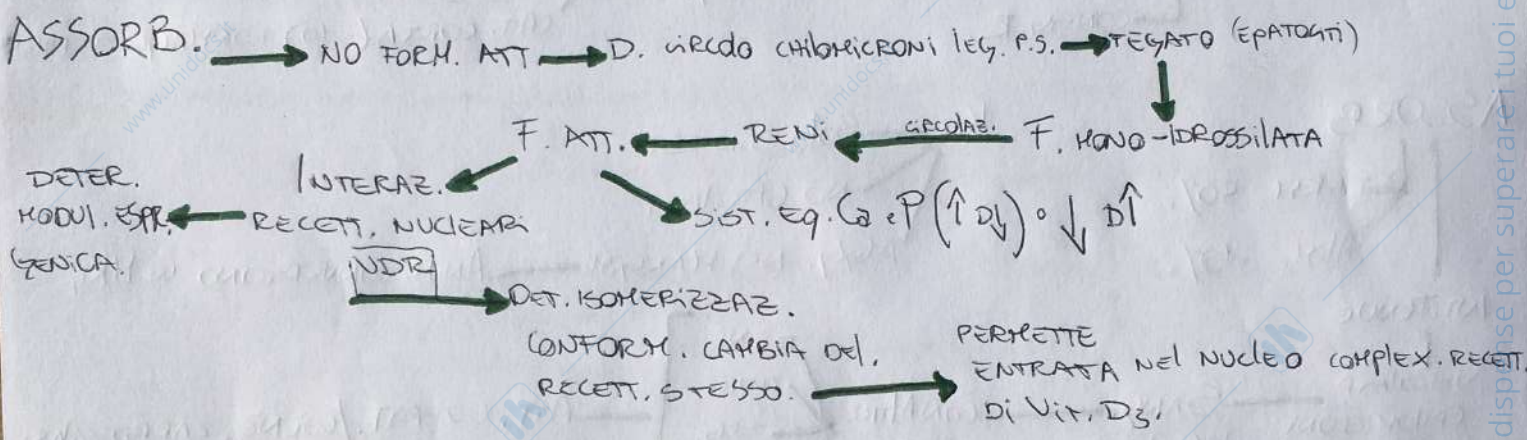 ASSORB. → NO FORM. ATT → D. CIRCOLO CHILOMICRONI LEG. P.S. → FEGATO (EPATOCITI)
F. ATT. ← RENI ← CIRCOLAZ. F. MONO-IDROSSILATA
DETER. INTERAZ.
MODUL. ESPR. ← RECETT. NUCLEARI SIST. EQ. Ca e P (↑ D↓) o ↓ D↑
GENICA. VDR
→ DET. ISOMERIZZAZ.
CONFORM. CAMBIA DEL.
RECETT. STESSO. →
PERMETTE
ENTRATA NEL NUCLEO COMPLEX. RECETT.
DI VIT. D3.
dispense per superare i tuoi e